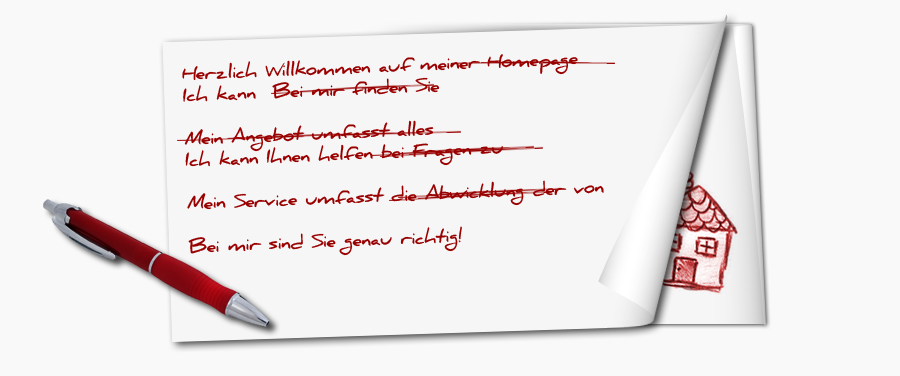 Herzlich Willkommen auf meiner Homepage
Ich kann Bei mir finden Sie
Mein Angebot umfasst alles
Ich kann Ihnen helfen bei Fragen zu
Mein Service umfasst die Abwicklung der von
Bei mir sind Sie genau richtig!